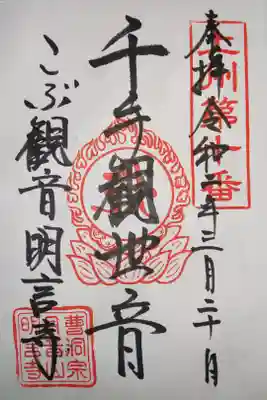 奉拝 令和二年三月二十日
州第一番
千手觀世音
こぶ観音明言寺
曹洞宗
明言寺